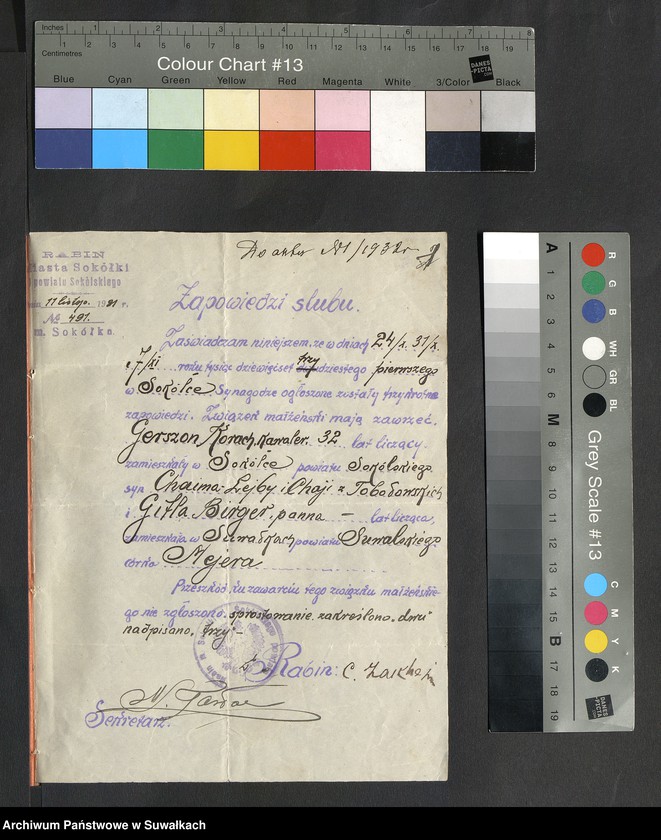 Inches 1 2 3 4 5 6 7 8
Centimetres 1 2 3 4 5 6 7 8 9 10 11 12 13 14 15 16 17 18 19
Colour Chart #13
DANES
-PICTA
.COM
Blue Cyan Green Yellow Red Magenta White 3/Color Black
Do aktu N1/1932 r
RABIN
Miasta Sokółki
Powiatu Sokólskiego
11 listop. 1931 r.
№ 491.
m. Sokółka
Zapowiedzi ślubu.
Zaświadczam niniejszem, że w dniach 24/x. 31/x.
i 7/xi roku tysiąc dziewięćset trzydziestego pierwszego
w Sokółce Synagodze ogłoszone zostały trzykrotne
zapowiedzi. Związek małżeński mają zawrzeć.
Gerszon Korach, kawaler 32 lat liczący.
zamieszkały w Sokółce powiatu Sokólskiego
syn Chaima-Lejby i Chaji z Tobodowskich
i Gitla Birger, panna — lat licząca,
zamieszkała w Suwałkach powiatu Suwalskiego
córka Mejera
Przeszkód ku zawarciu tego związku małżeńskie-
go nie zgłoszono. sprostowanie. zakreślono „dwu"
nadpisano „trzy" -
Rabin: C.
Sekretarz.
A 1 2 3 4 5 6 M 8 9 10 11 12 13 14 15 B 17 18 19
R G B WH GR BL
Grey Scale #13
C M Y K
DANES
-PICTA
.COM
Archiwum Państwowe w Suwałkach